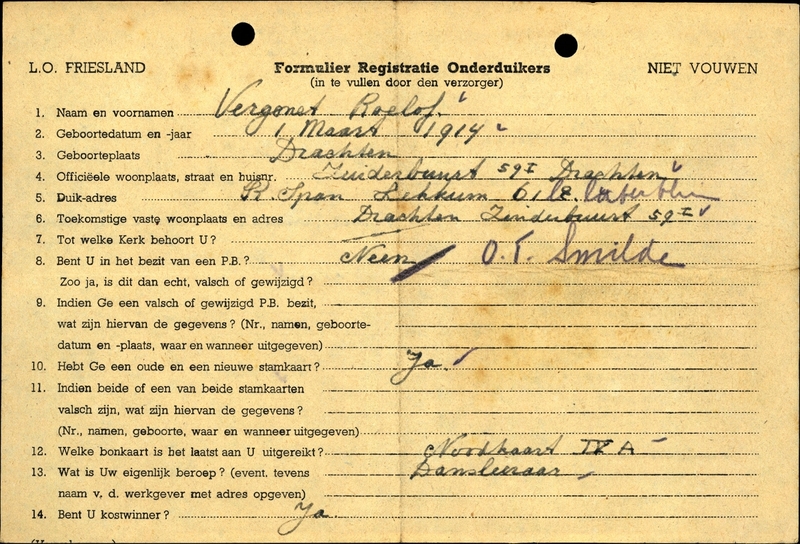 L.O. FRIESLAND Formulier Registratie Onderduikers NIET VOUWEN
(in te vullen door den verzorger)
1. Naam en voornamen Vergonet Roelof.
2. Geboortedatum en -jaar 1 Maart 1914
3. Geboorteplaats Drachten
4. Officiëele woonplaats, straat en huisnr. Zuiderbuurt 59 I Drachten
5. Duik-adres R. Span Lekkum 61
6. Toekomstige vaste woonplaats en adres Drachten Zuiderbuurt 59 I
7. Tot welke Kerk behoort U? —
8. Bent U in het bezit van een P.B.? Neen O.T. Smilde
Zoo ja, is dit dan echt, valsch of gewijzigd?
9. Indien Ge een valsch of gewijzigd P.B. bezit,
wat zijn hiervan de gegevens? (Nr., namen, geboorte-
datum en -plaats, waar en wanneer uitgegeven)
10. Hebt Ge een oude en een nieuwe stamkaart? Ja.
11. Indien beide of een van beide stamkaarten
valsch zijn, wat zijn hiervan de gegevens?
(Nr., namen, geboorte, waar en wanneer uitgegeven)
12. Welke bonkaart is het laatst aan U uitgereikt? Noodkaart IV A
13. Wat is Uw eigenlijk beroep? (event. tevens Dansleeraar
naam v. d. werkgever met adres opgeven)
14. Bent U kostwinner? Ja.